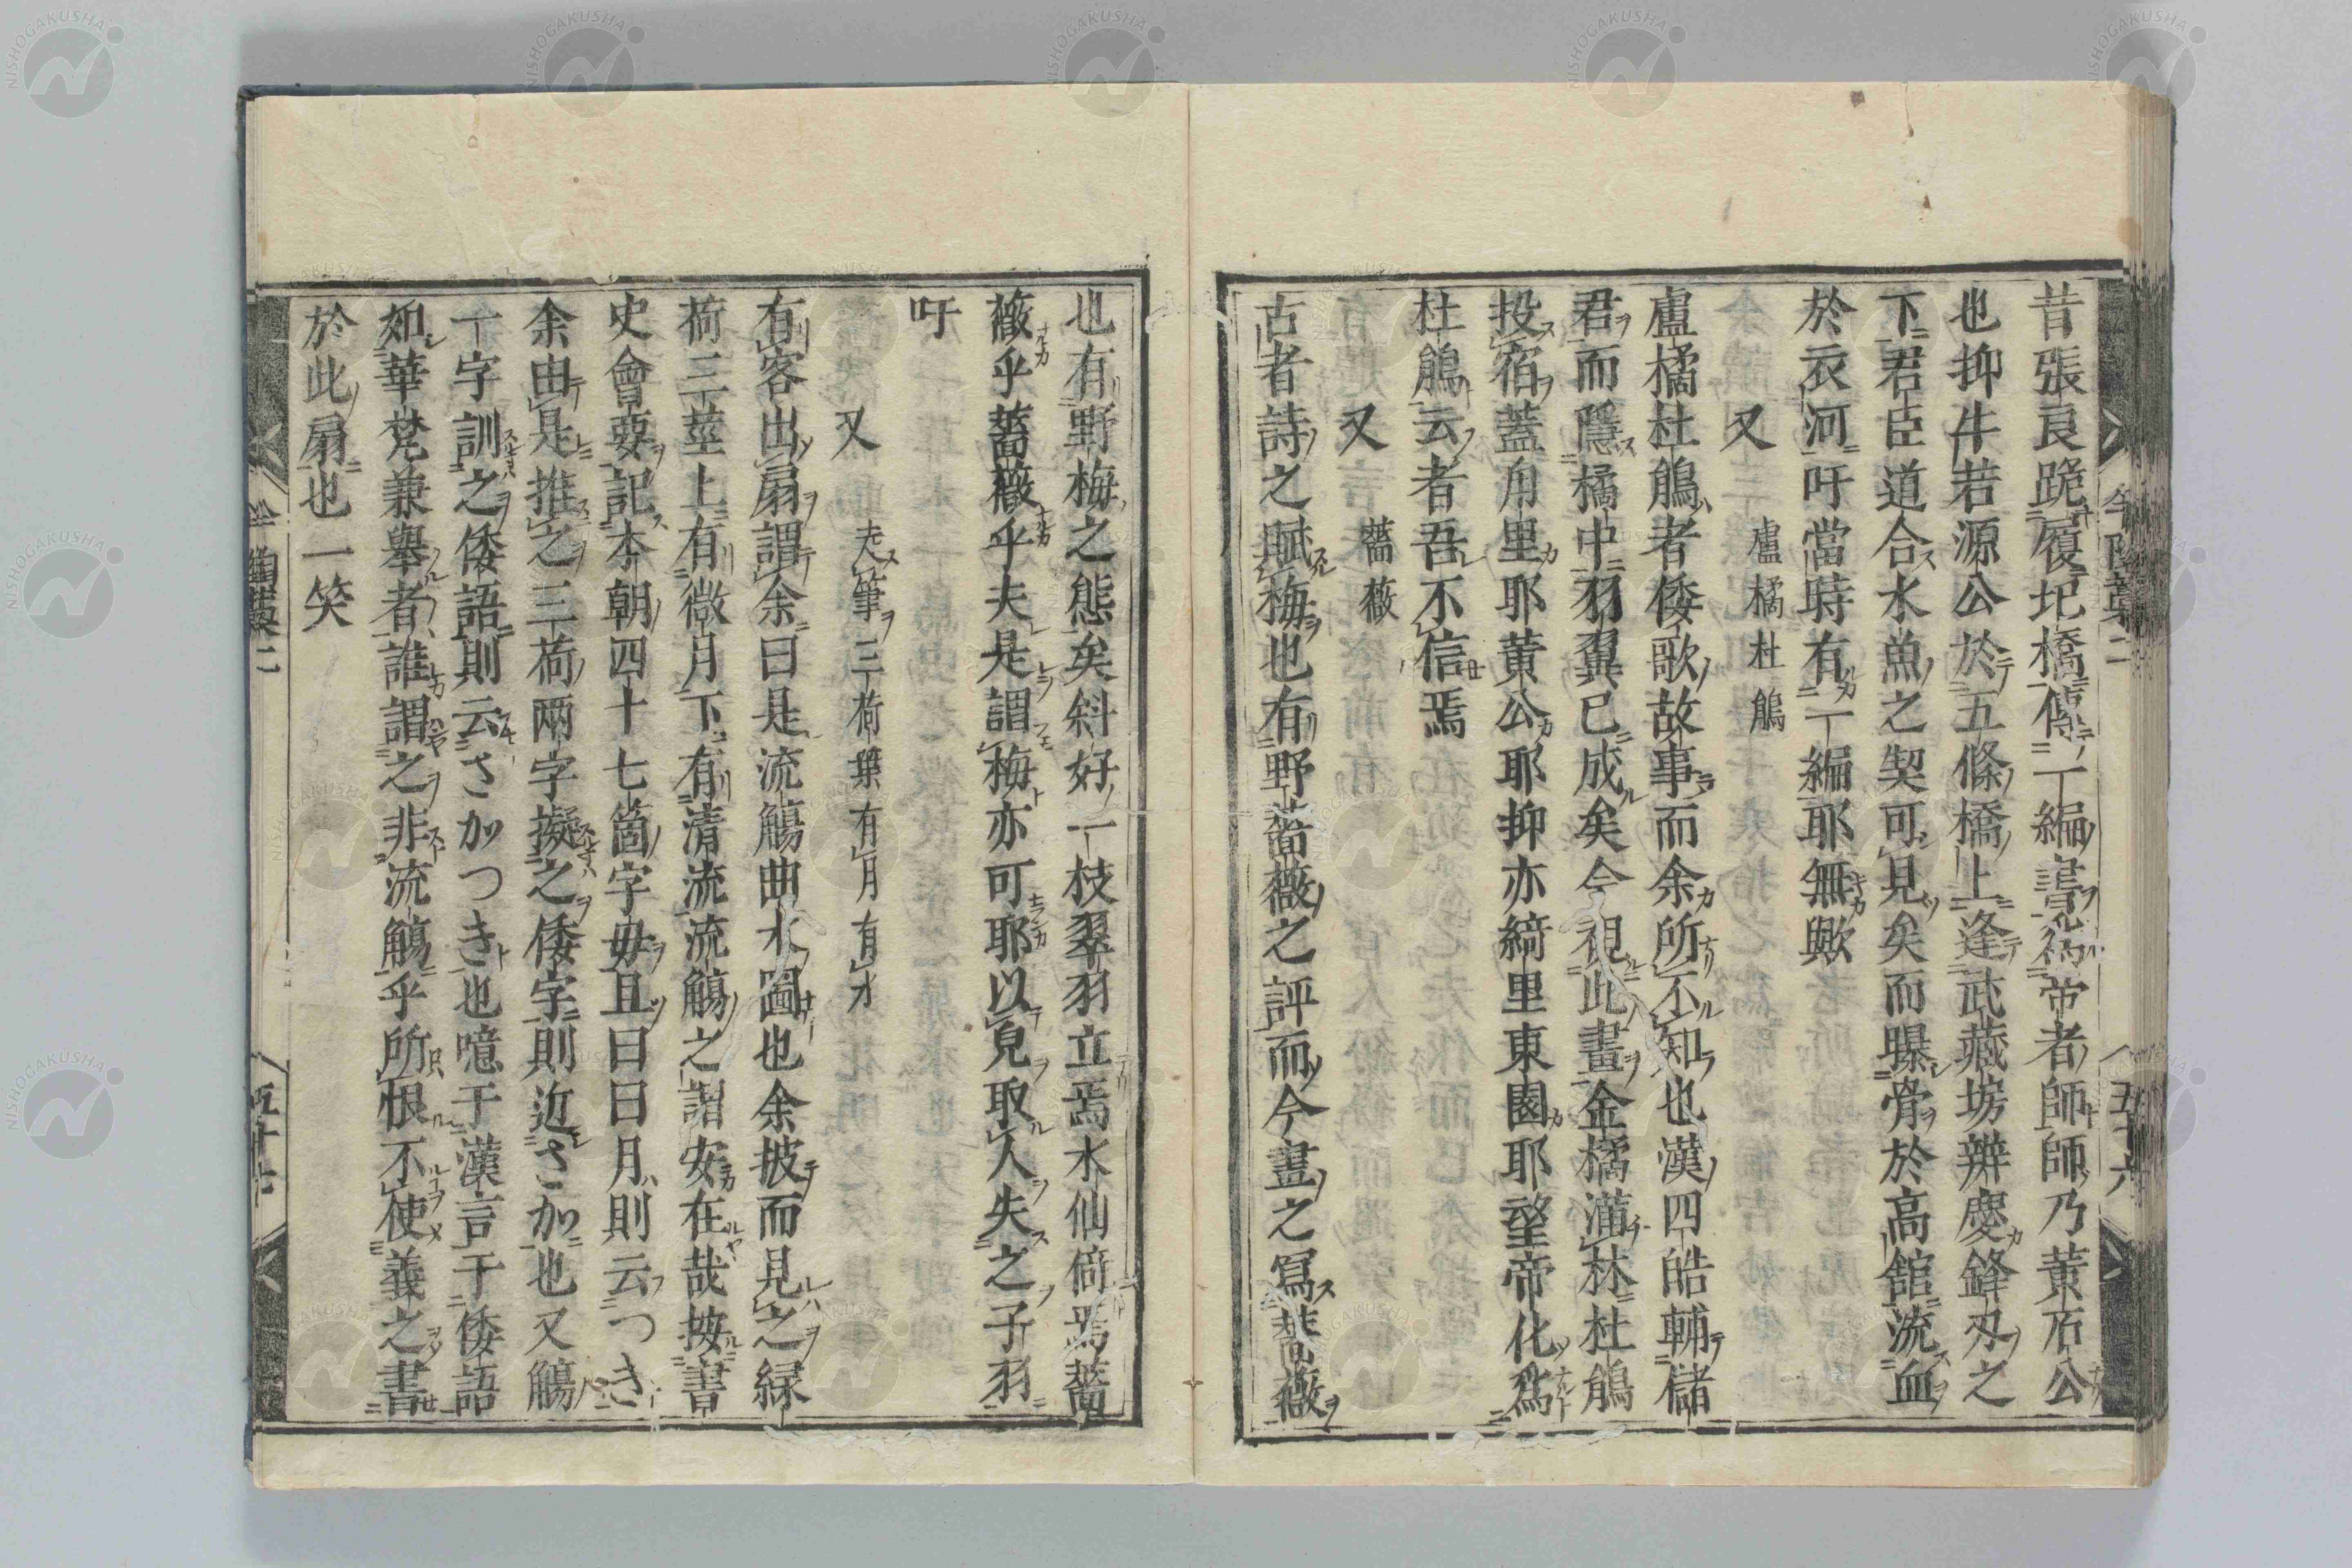 昔張良跪履圯橋傳一編書為帝者師師乃黄石公
也抑牛若源公於五條橋上逢武藏坊辨慶鋒刃之
下君臣道合水魚之契可見矣而曝骨於高舘流血
於衣河吁當時有一編耶無歟
又　盧橘杜鵑
盧橘杜鵑者倭歌故事而余所不知也漢四皓輔儲
君而隱橘中羽翼已成矣今視此畫金橘滿林杜鵑
投宿蓋甪里耶黄公耶抑亦綺里東園耶望帝化為
杜鵑云者吾不信焉
又　薔薇
古者詩之賦梅也有野薔薇之評而今畫之寫薔薇
也有野梅之態矣斜好一枝翠羽立焉水仙倚焉薔
薇乎薔薇乎夫是謂梅亦可耶以皃取人失之子羽
吁
又　夫筆三荷葉有月有才
有客出扇謂余曰是流觴曲水圖也余披而見之緑
荷三莖上有微月下有清流流觴之謂安在哉按書
史會要記本朝四十七箇字毋且曰日月則云つき
余由是推之三荷兩字擬之倭字則近さか也又觴
一字訓之倭語則云さかつき也噫于漢言于倭語
如華梵兼擧者誰謂之非流觴乎所恨不使義之書
於此扇也一笑
五十六